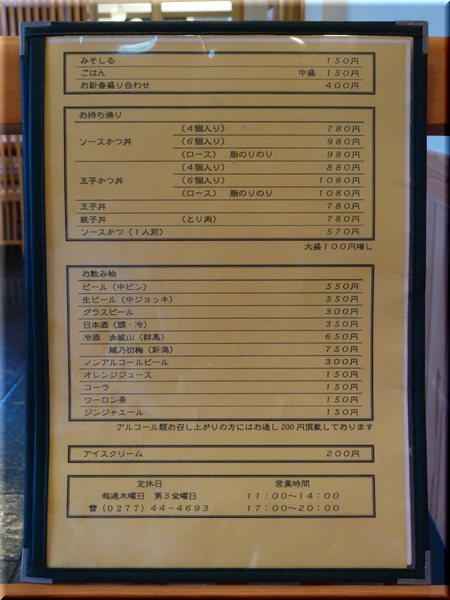 みそしる 150円
ごはん 中盛 150円
お新香盛り合わせ 400円
お持ち帰り
(4個入り) 780円
ソースかつ丼 (6個入り) 980円
(ロース) 脂のりのり 980円
(4個入り) 880円
玉子かつ丼 (6個入り) 1080円
(ロース) 脂のりのり 1080円
玉子丼 780円
親子丼 (とり肉) 780円
ソースかつ(1人前) 570円
大盛100円増し
お飲み物
ビール(中ビン) 550円
生ビール(中ジョッキ) 550円
グラスビール 300円
日本酒(燗・冷) 350円
冷酒 赤城山(群馬) 650円
越乃初梅(新潟) 750円
ノンアルコールビール 300円
オレンジジュース 150円
コーラ 150円
ウーロン茶 150円
ジンジャエール 150円
アルコール類お召し上がりの方にはお通し200円頂戴しております
アイスクリーム 200円
定休日 営業時間
毎週木曜日 第3金曜日 11:00〜14:00
☎(0277)44-4693 17:00〜20:00